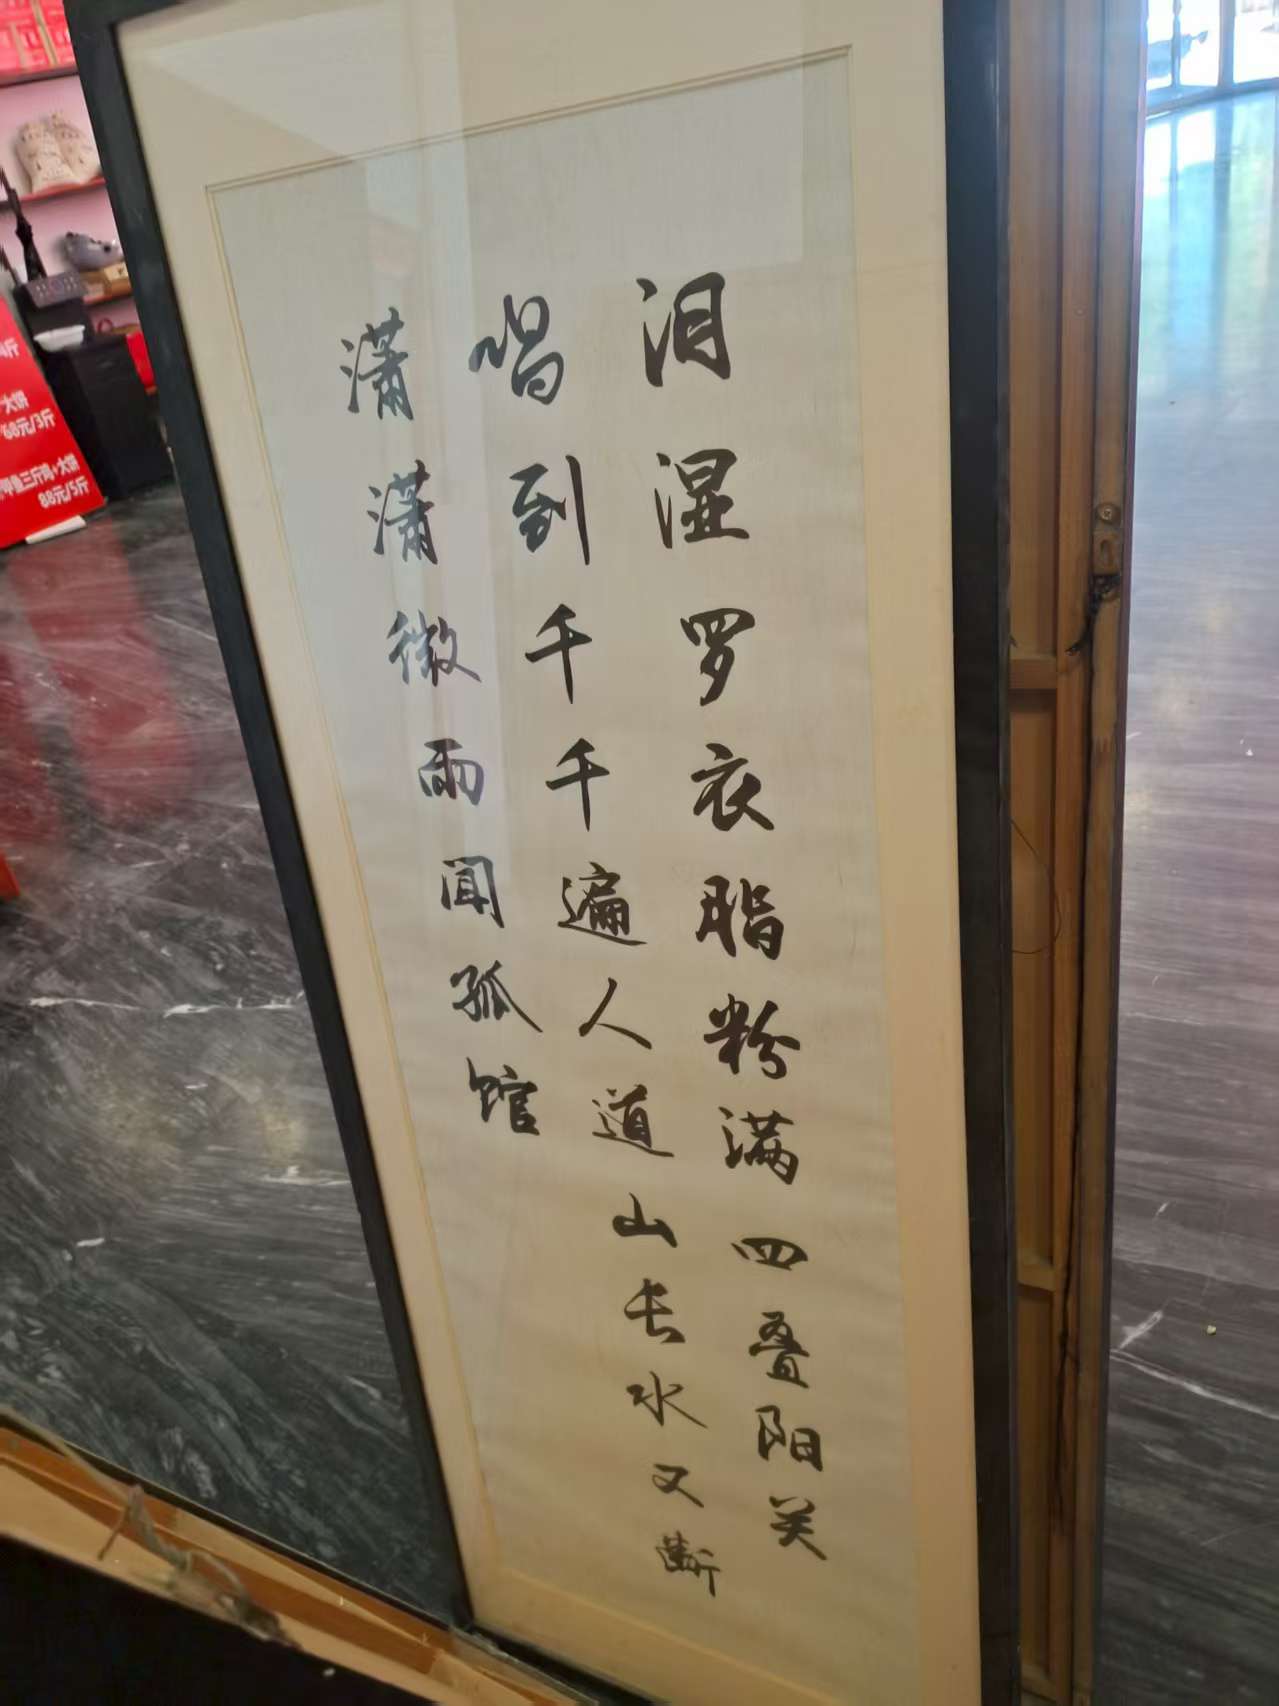 泪湿罗衣脂粉满四叠阳关
唱到千千遍人道山长水又断
潇潇微雨闻孤馆
大饼
68元/3斤
甲鱼三斤鸡+大饼
88元/5斤